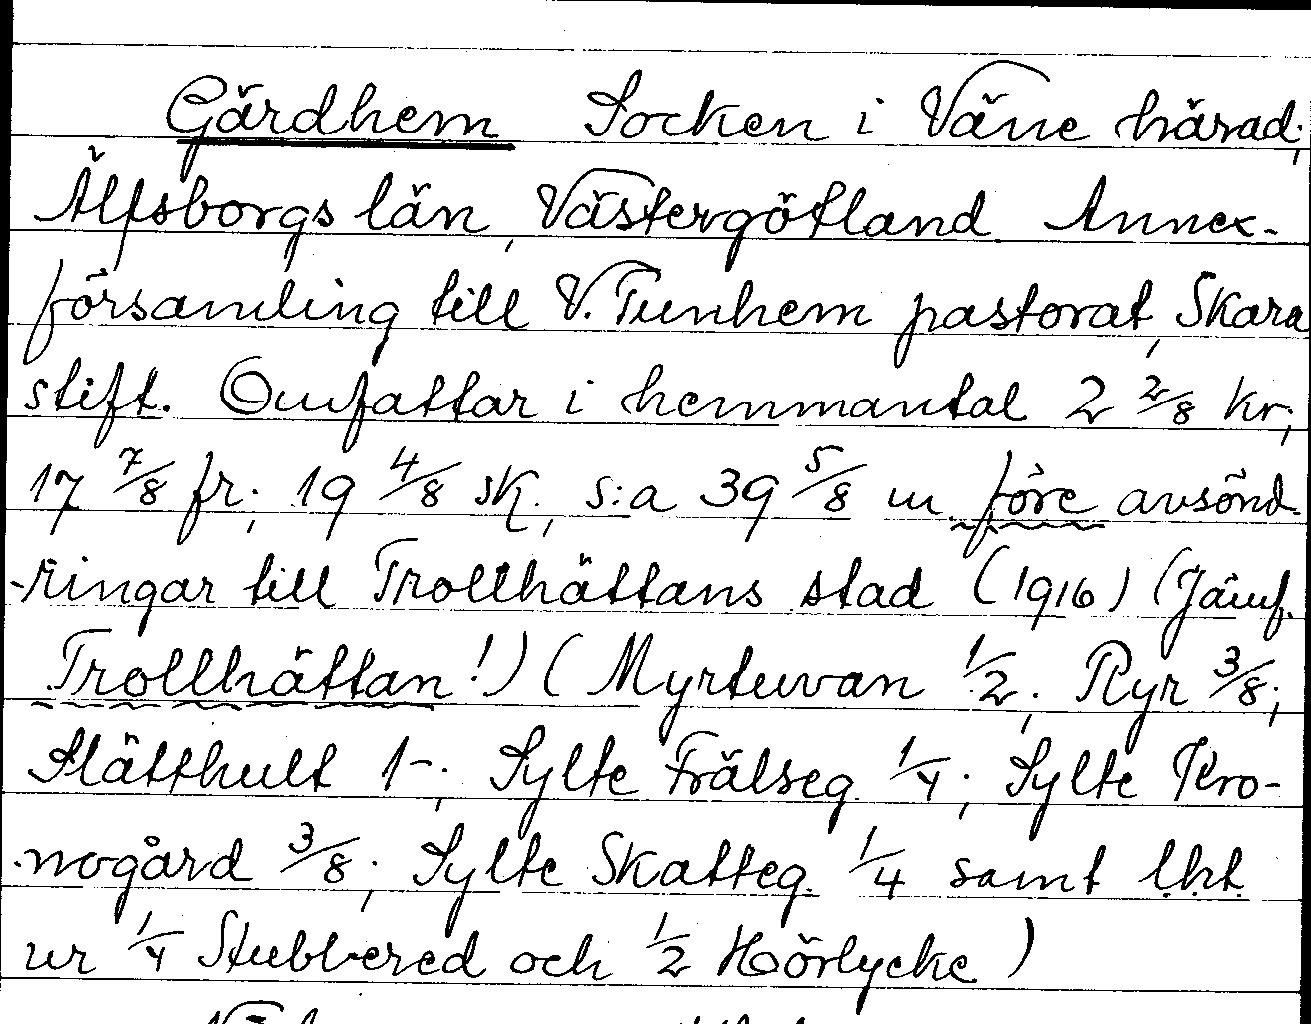 Gärdhem Socken i Väne härad,
Älfsborgs län, Västergötland. Annex-
församling till V. Tunhem pastorat, Skara
stift. Omfattar i hemmantal 2 2/8 kr;
17 7/8 fr; 19 4/8 sk; s:a 39 5/8 m. före avsönd-
-ringar till Trollhättans stad (1916) (Jämf.
Trollhättan!) (Myrtuvan 1/2; Ryr 3/8;
Slätthult 1-; Sylte Frälseg. 1/4; Sylte Kro-
-nogård 3/8; Sylte Skatteg. 1/4 samt lht.
ur 1/4 Stubbered och 1/2 Hörlycke)